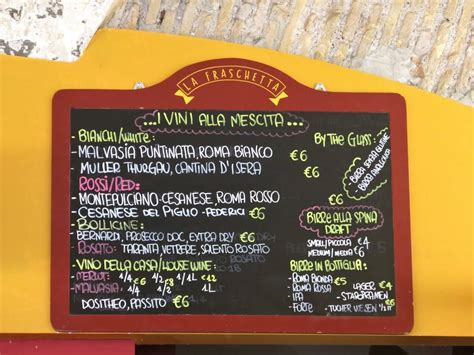 LA FRASCHETTA
...I VINI ALLA MESCITA...
- BIANCHI/WHITE:
BY THE GLASS:
- MALVASIA PUNTINATA, ROMA BIANCO €6
- MULLER THURGAU, CANTINA D'ISERA €6
ROSSI/RED:
- MONTEPULCIANO-CESANESE, ROMA ROSSO
- CESANESE DEL PIGLIO-FEDERICI €6
- BOLLICINE:
BERNARDI, PROSECCO DOC, EXTRA DRY €6
- ROSATO: TARANTA, VETRERE, SALENTO ROSATO €6
- VINO DELLA CASA/HOUSE WINE:
- MERLOT: 1/4 1/2 1L
- MALVASIA: 1/4 1/2 1L
€12
- DOSITHEO, PASSITO €6
BIRRA SENZA GLUTINE
- BIRRA ANALCOLICA
€6
BIRRE ALLA SPINA
DRAFT
SMALL/PICCOLA €4
MEDIUM/MEDIA €6
BIRRE IN BOTTIGLIA:
- ROMA BIONDA €5
- ROMA ROSSA
LAGER €4
- IPA
- STAROPRAMEN
- FORTE
- TUCHER WEISEN